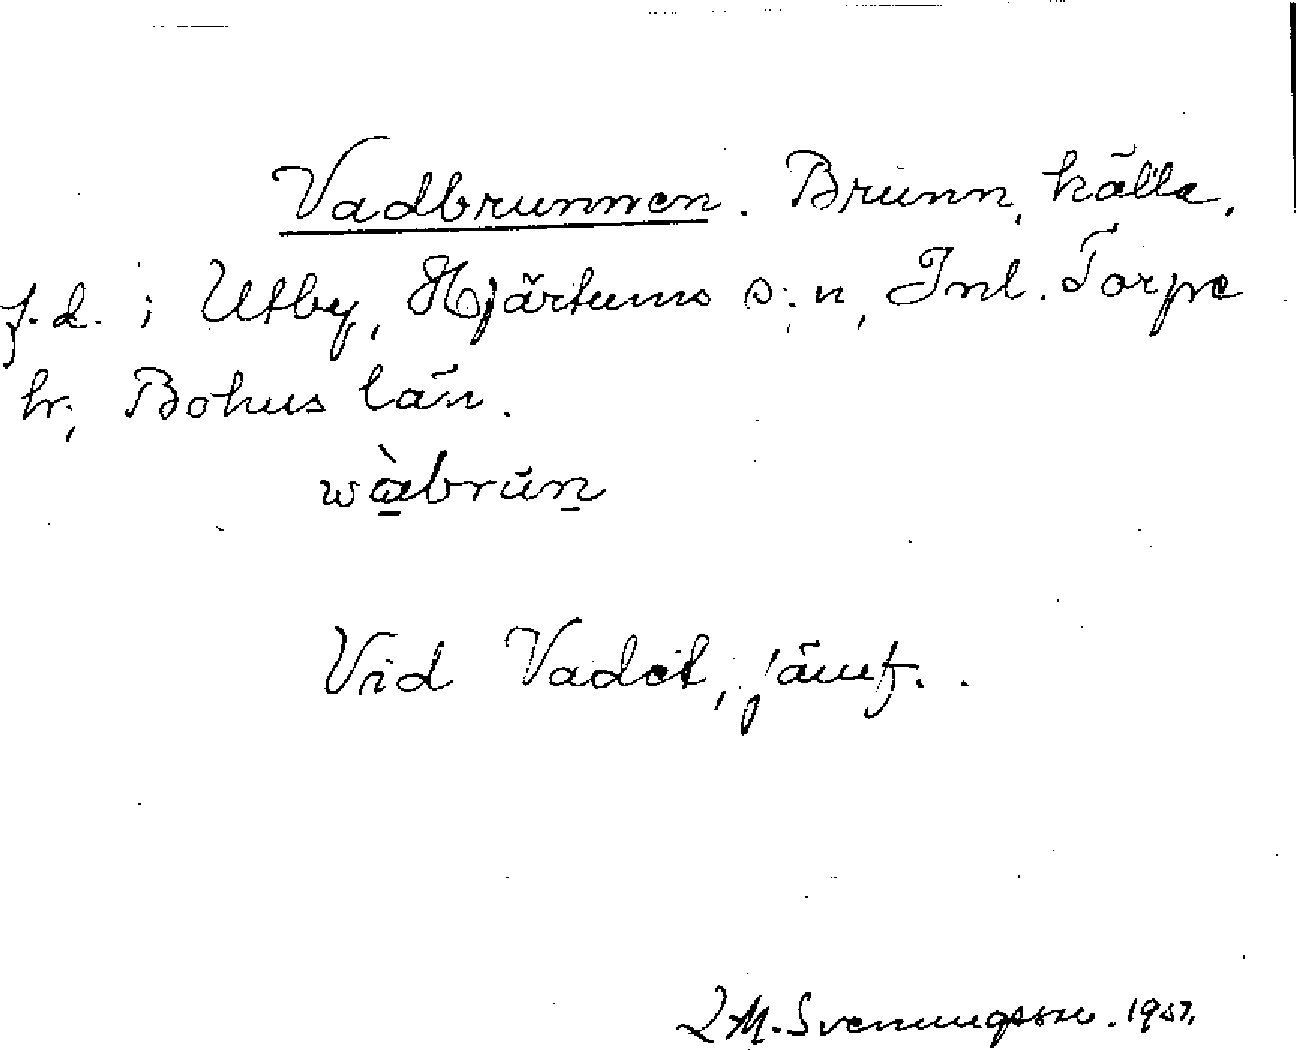 Vadbrunnen. Brunn, källa,
f.d. i Utby, Hjärtums s:n, Inl. Torpe
hr, Bohus län.
wàbrun̲
Vid Vadet, jämf.
L M. Svenungsson. 1957.